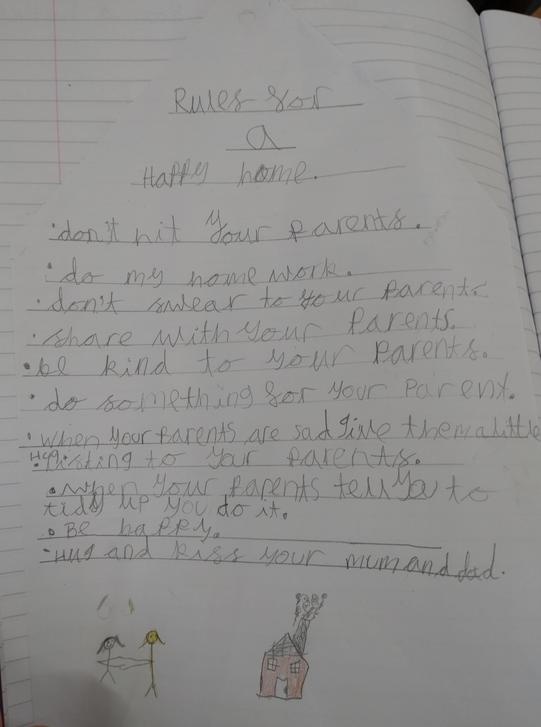 Rules for
a
Happy home.
·don't hit your parents.
·do my home work.
·don't swear to your parents
·share with your parents.
·be kind to your parents.
·do something for your parent.
·when your parents are sad give them a little
Hug
·listing to your parents.
·when your parents tell ya to
tidy up you do it.
·Be happy.
·Hug and kiss your mum and dad.